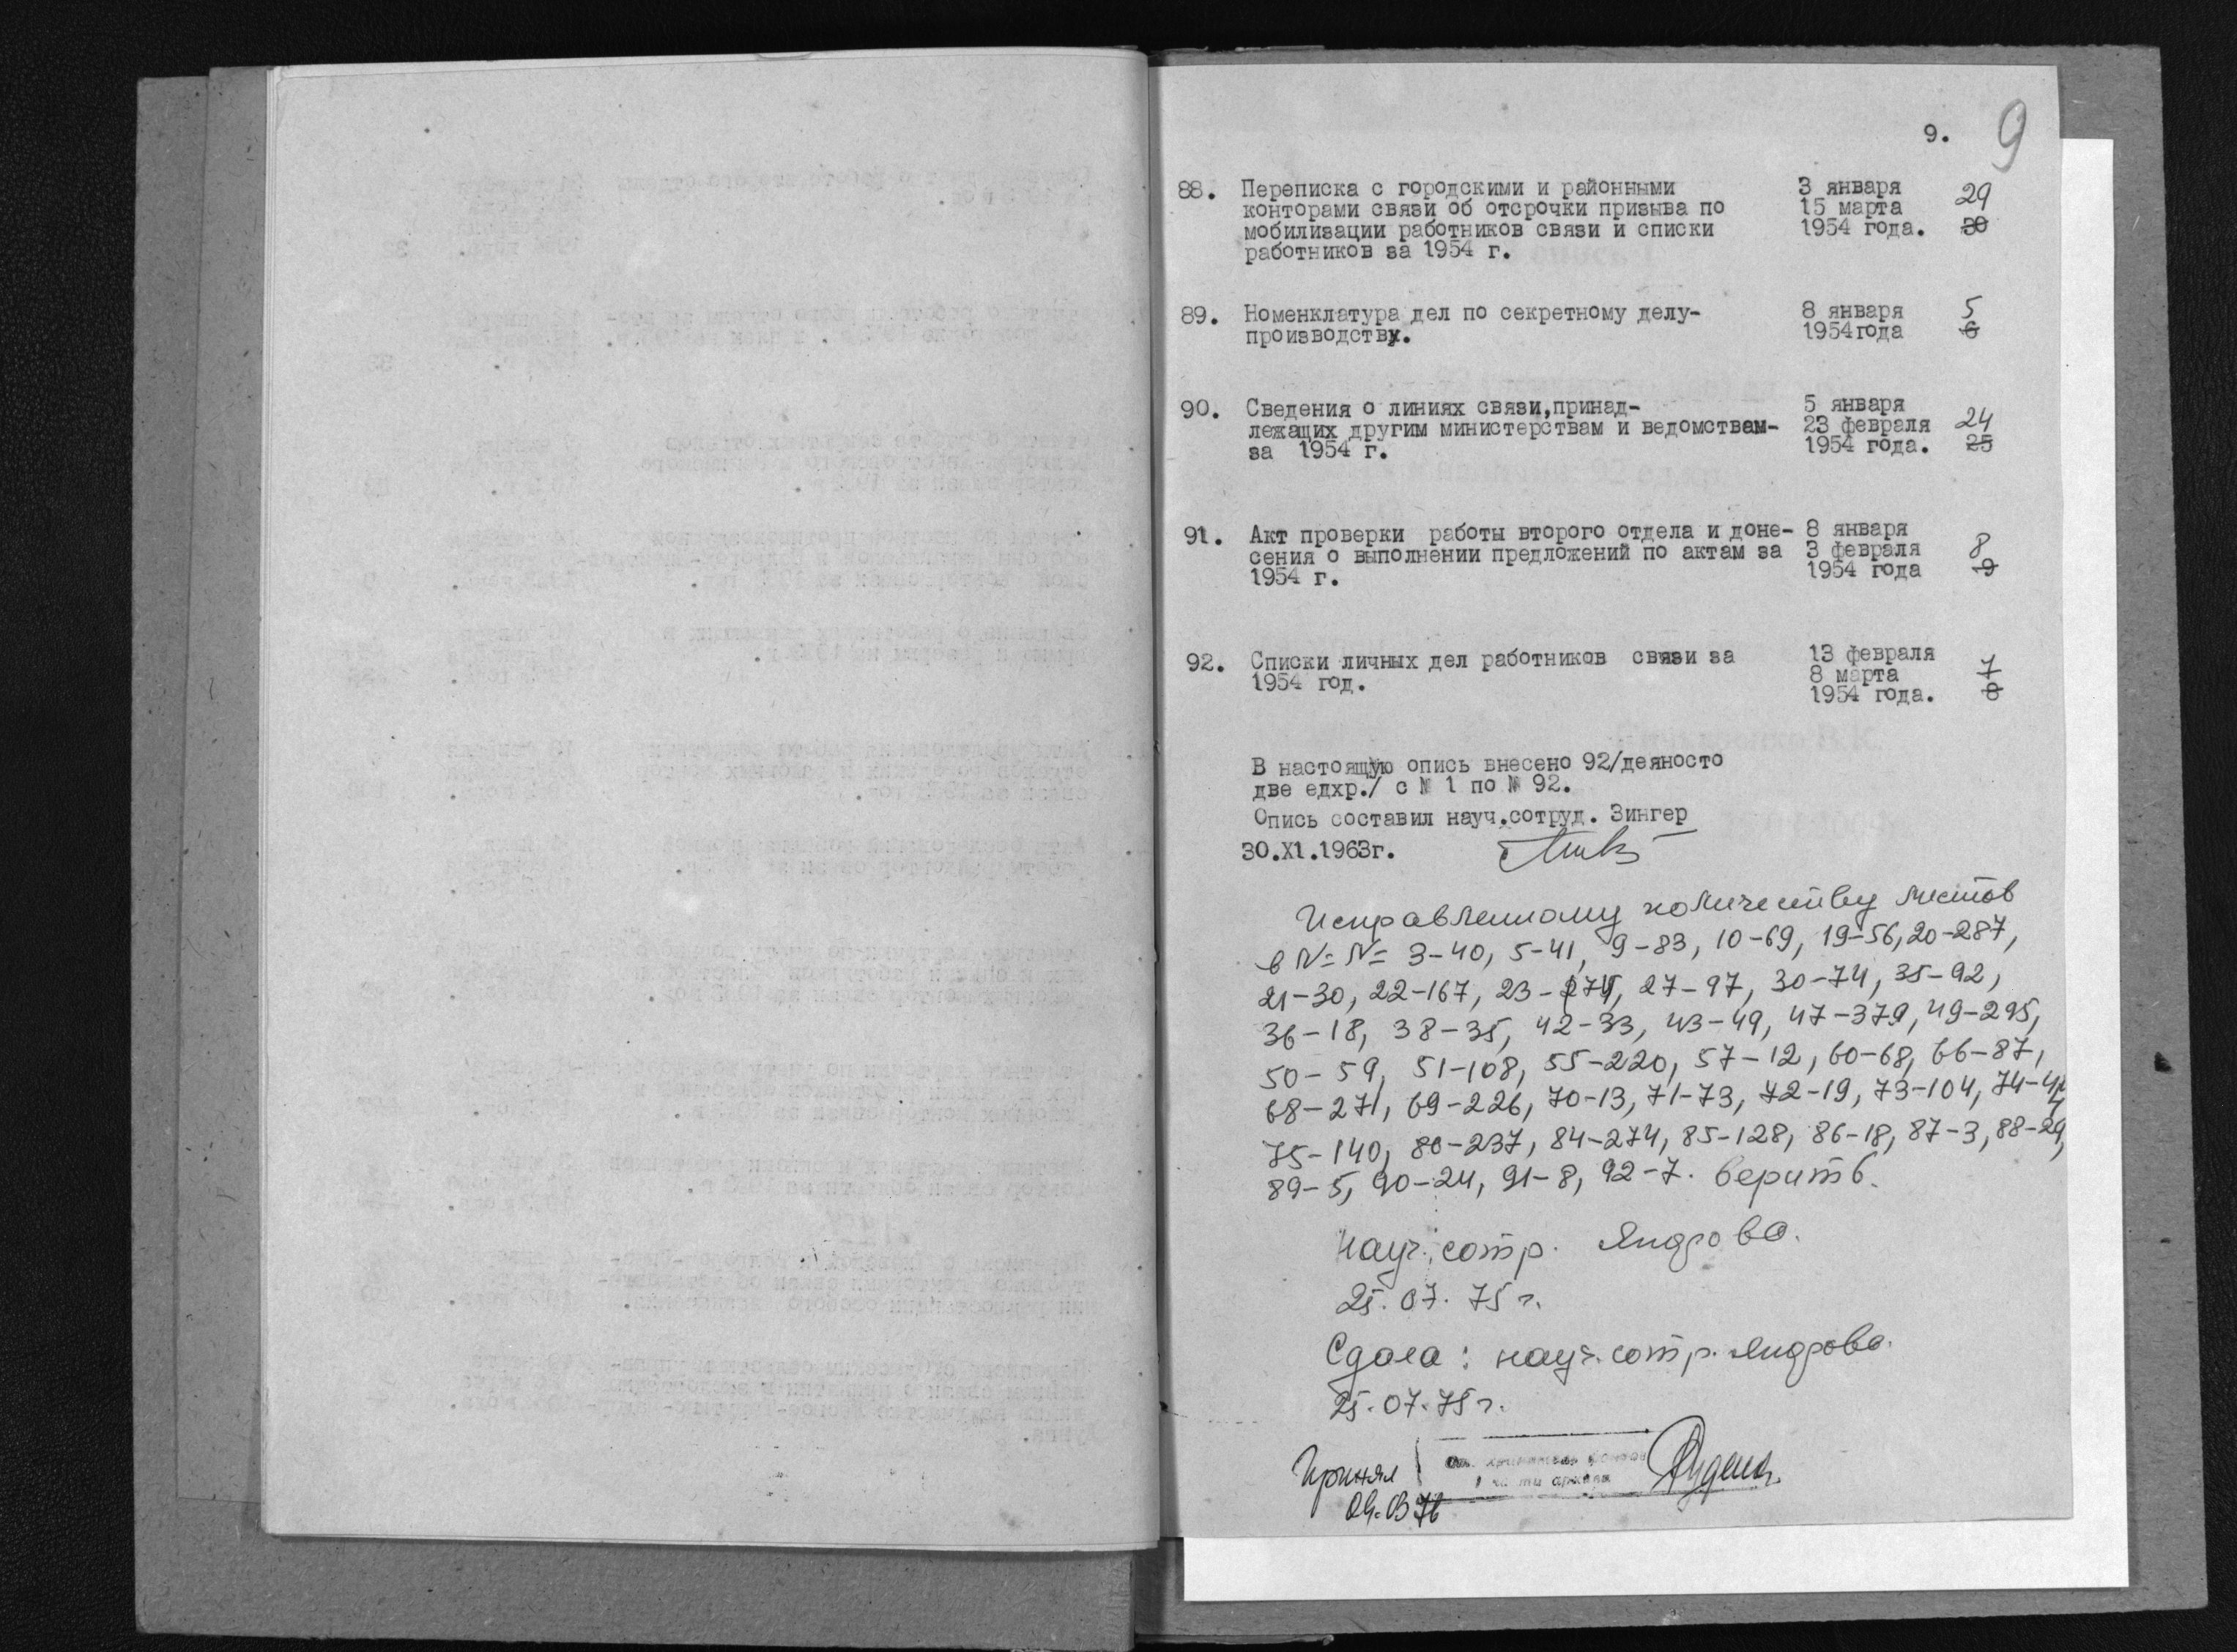 9. 9
88. Переписка с городскими и районными 3 января 29
конторами связи об отсрочки призыва по 15 марта
мобилизации работников связи и списки 1954 года. 30
работников за 1954 г.
89. Номенклатура дел по секретному делу- 8 января 5
производству. 1954года 6
90. Сведения о линиях связи,принад- 5 января
лежащих другим министерствам и ведомствам- 23 февраля 24
за 1954 г. 1954 года. 25
91. Акт проверки работы второго отдела и доне- 8 января
сения о выполнении предложений по актам за 3 февраля 8
1954 г. 1954 года 9
92. Списки личных дел работников связи за 13 февраля
1954 год. 8 марта 7
1954 года. 8
В настоящую опись внесено 92/деяносто
две едхр./ с № 1 по № 92.
Опись составил науч.сотруд. Зингер
30.XI.1963г.
Исправленному количеству листов
в №№ 3-40, 5-41, 9-83, 10-69, 19-56, 20-287,
21-30, 22-167, 23-274, 27-97, 30-74, 35-92,
36-18, 38-35, 42-33, 43-49, 47-379, 49-295,
50-59, 51-108, 55-220, 57-12, 60-68, 66-87,
68-271, 69-226, 70-13, 71-73, 72-19, 73-104,
75-140, 80-237, 84-274, 85-128, 86-18, 87-3, 88-29,
89-5, 90-24, 91-8, 92-7. верить.
Науч. сотр. Яндрова.
25.07.75 г.
Сдала: науч. сотр. Яндрова.
25.07.75 г.
Принял